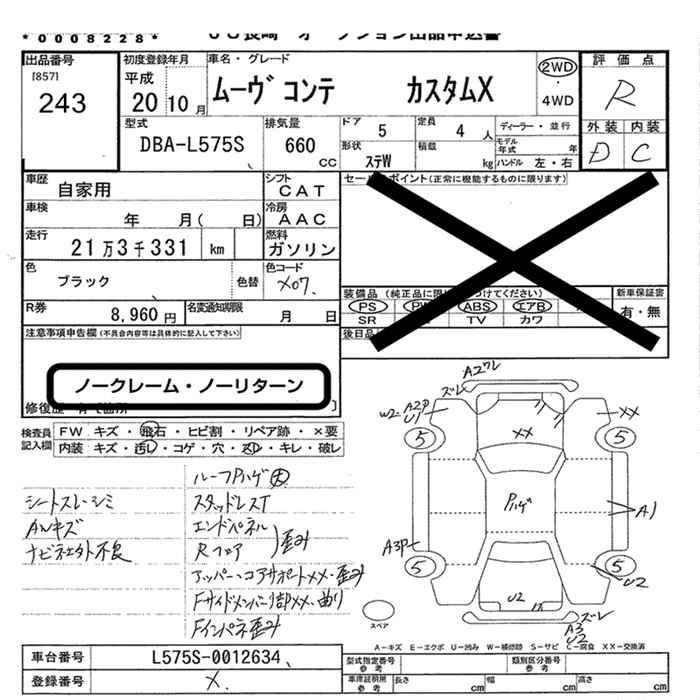 *0008228*
出品番号
[857]
243
初度登録年月
平成
20 10月
車名・グレード
ムーヴ コンテ カスタムX
2WD
・
4WD
評価点
R
外装 内装
D C
型式
DBA-L575S
排気量
660
cc
ドア
5
定員
4 人
形状
ステW
積載
kg
ディーラー・並行
モデル年式 年
ハンドル 左・右
車歴
自家用
シフト
CAT
車検
年 月( 日)
冷房
AAC
走行
21万3千331 km
燃料
ガソリン
色
ブラック
色替
色コード
X07.
R券
8,960円
名変通知期限
月 日
セールスポイント(正常に機能するものに限ります)
装備品
PS ABS エアB
SR TV カワ
新車保証書
有・無
後日品
注意事項申告欄(不具合内容等は具体的に記入して下さい)
ノークレーム・ノーリターン
検査員記入欄
FW キズ・飛石・ヒビ割・リペア跡・×要
内装 キズ・汚レ・コゲ・穴・スレ・キレ・破レ
シートスレ・シミ
AWキズ
ナビネェ外不良
ルーフPハゲ大
スタッドレスT
エンドパネル
Rフロア
歪み
アッパー・コアサポートXX・歪み
Fサイドメンバー1部XX・曲り
Fインパネ歪み
ズレ
W2 A2P
U1
XX
XX
5
5
Pハゲ
A1
A3P
5
5
U2
U2
ズレ
A3
U2
スペア
A-キズ E-エクボ U-凹み W-補修跡 S-サビ C-腐食 XX-交換済
車台番号
L575S-0012634
登録番号
X.
型式指定番号
参考
類別区分番号
参考
車庫証明用
参考
長さ cm
幅 cm
高さ cm